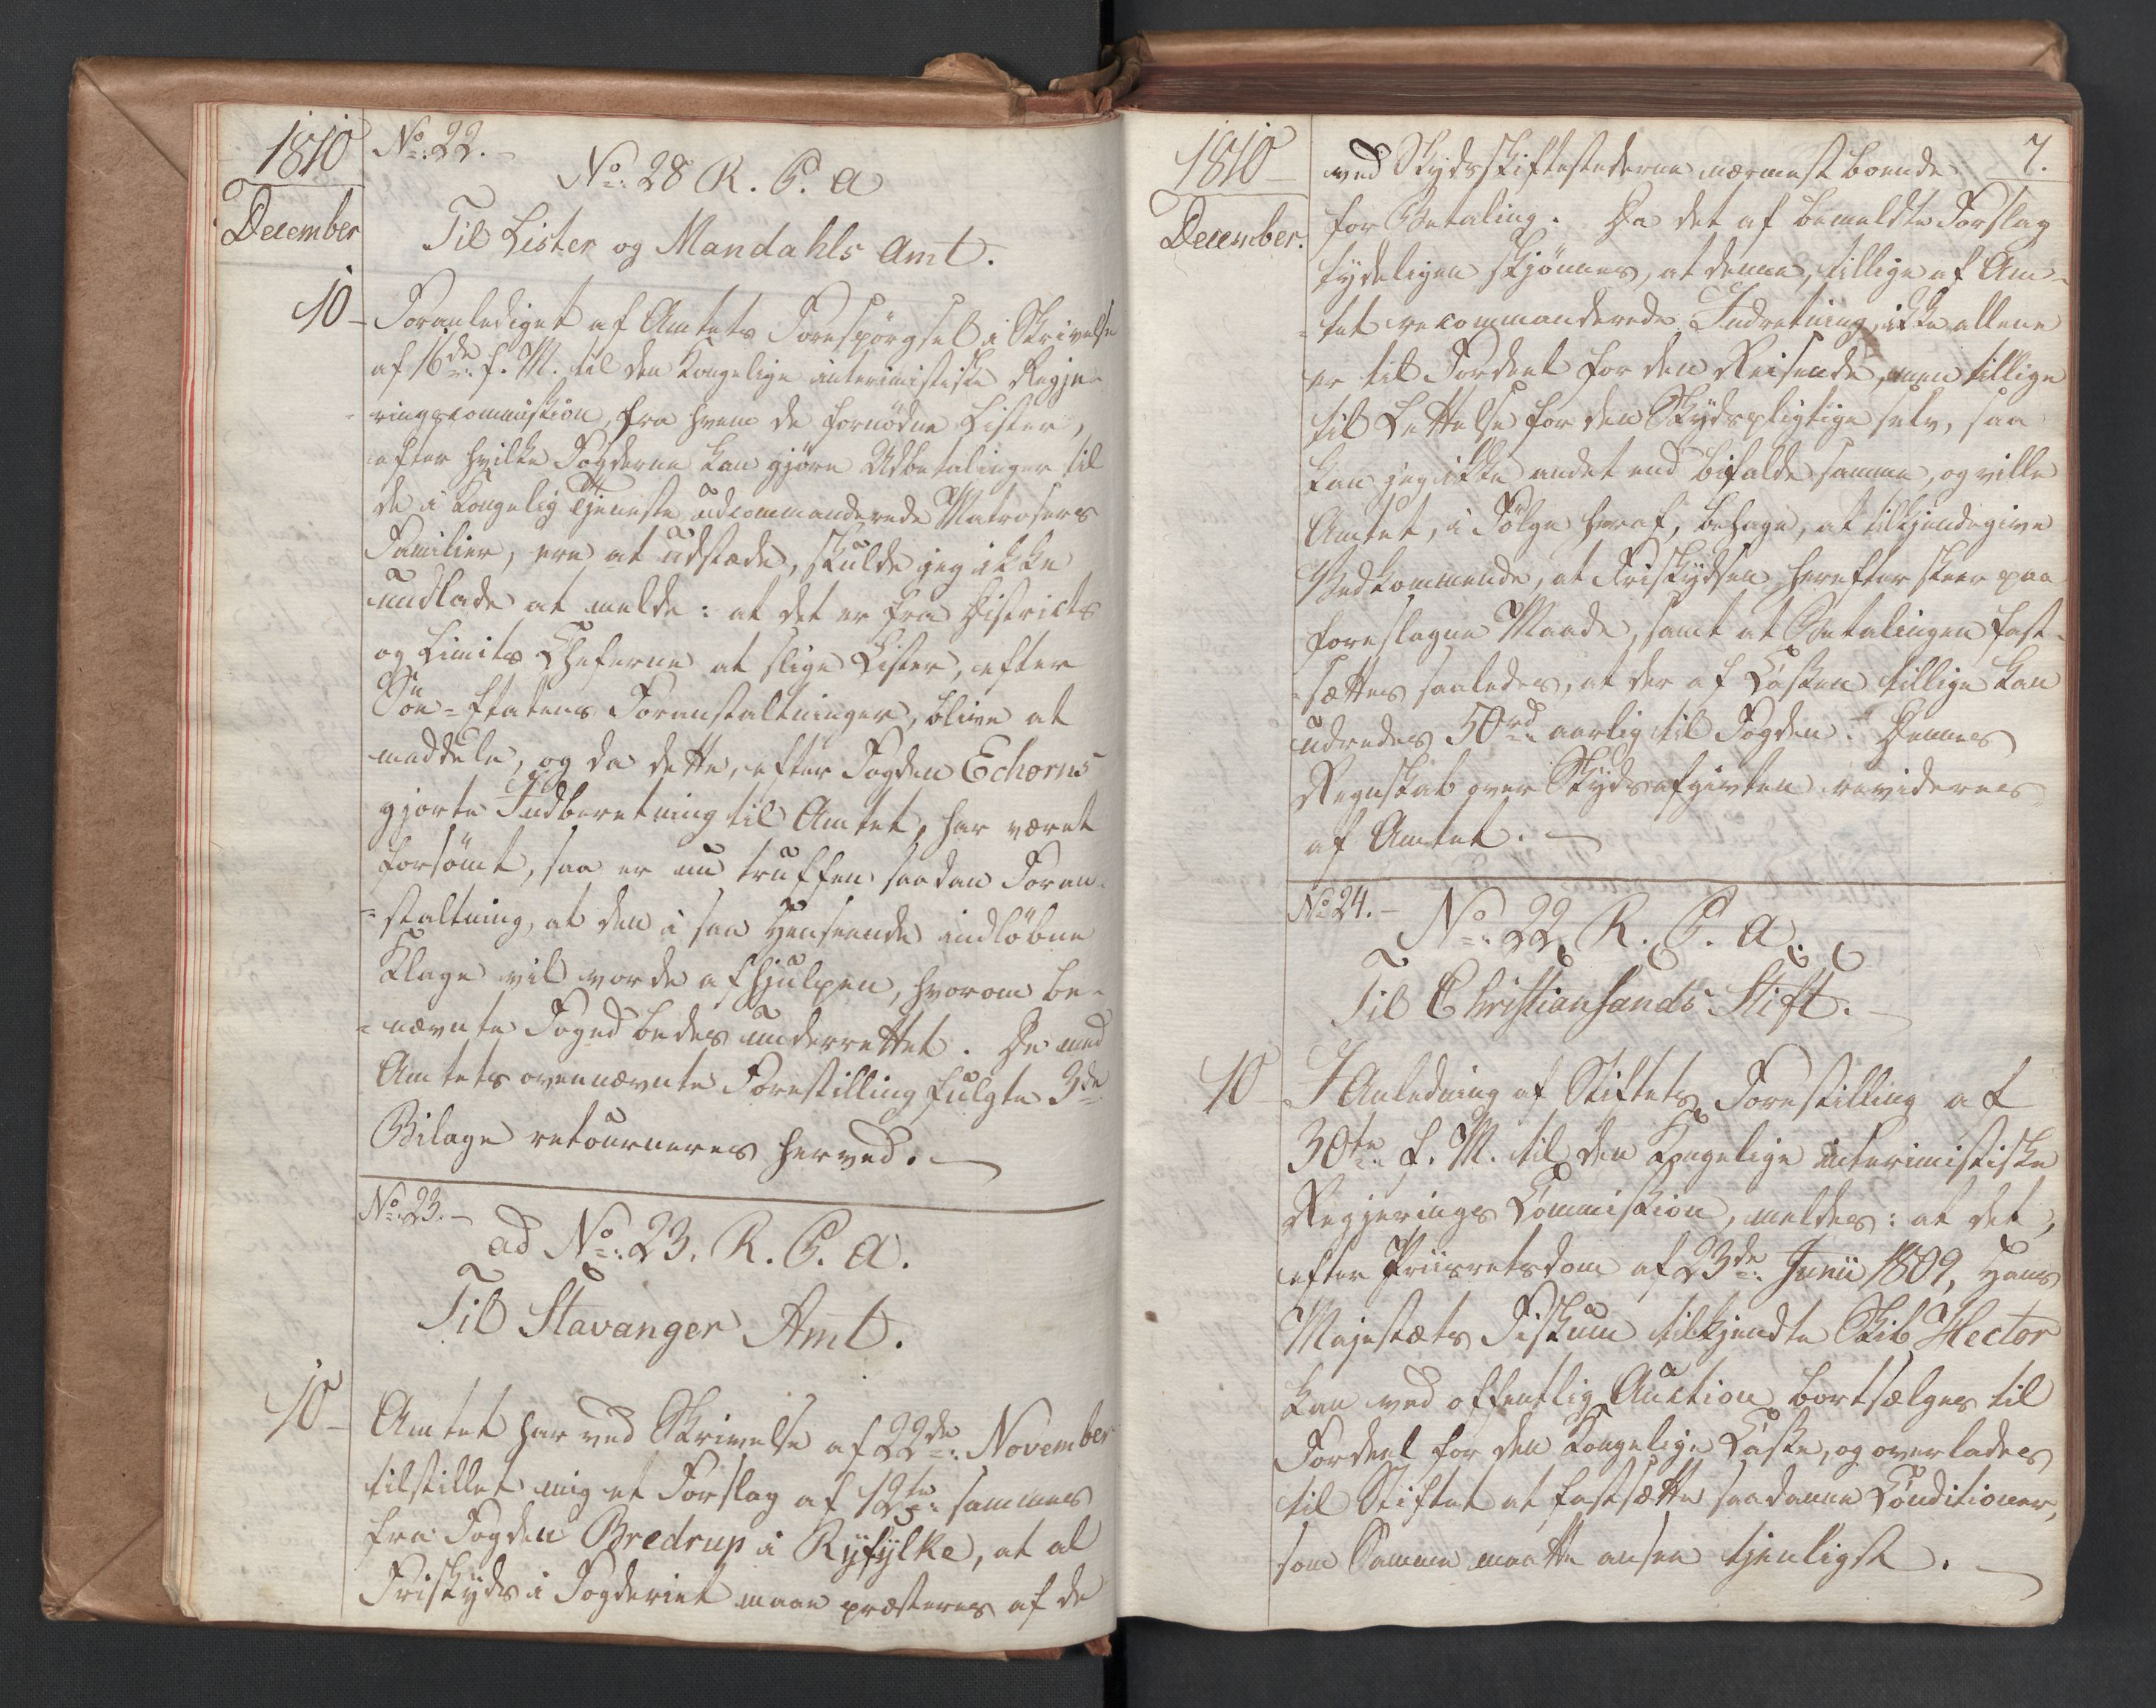 1810
December
No: 22.-
No: 28 R. C. a
Til Lister og Mandahls Amt.
10 - Foranlediget af Amtets Forespörgsel i Skrivelse
af 16de f. M. til den Kongelige interimistiske Regje-
ringscommission, fra hvem de fornödne Lister,
efter hvilke Fogderne kan gjöre Udbetalinger til
de i Kongelig Tjeneste udcommanderede Matrosers
Familier, ere at udstæde, skulde jeg ikke
undlade at melde: at det er fra Districts
og Limits Cheferne at slige Lister, efter
Söe-Etatens Foranstaltninger, blive at
meddele, og da dette, efter Fogden Echorns
gjorte Indberetning til Amtet, har været
forsömt, saa er nu truffen saadan Foran-
=staltning, at den i saa Henseende indlöbne
Klage vil vorde afhjulpen, hvorom be-
=nævnte Foged bedes underrettet. De med
Amtets ovennævnte Forestilling fulgte 3de
Bilage retourneres herved.
No: 23.-
ad No: 23. R. C. a.
Til Stavanger Amt.
10 - Amtet har ved Skrivelse af 22de: November
tilstillet mig et Forslag af 12te: sammes
fra Fogden Bredrup i Ryfylke, at al
Friskyds i Fogderiet maae præsteres af de
1810
December.
7.
ved Skydsskiftestederne nærmest boende
for Betaling. Da det af bemeldte Forslag
tydeligen skjönnes, at denne, tillige af Am-
=tet recommanderede Indretning, ikke allene
er til Fordeel for den Reisende, men tillige
til Lettelse for den Skydspligtige selv, saa
kan jeg ikke andet end bifalde samme, og ville
Amtet, i Fölge heraf, behage, at tilkjendegive
Vedkommende, at Friskydsen herefter skeer paa
foreslagne Maade, samt at Betalingen fast-
=sættes saaledes, at der af Cassen tillige kan
udredes 50rd: aarlig til Fogden. Dennes
Regnskab over Skydsafgivten revideres
af Amtet.
No 24.-
No: 22. R. C. a.
Til Christiansands Stift.
10 - I Anledning af Stiftets Forestilling af
30te: f. M. til den Kongelige interimistiske
Regjerings Commission, meldes: at det,
efter Priisretsdom af 23de: Junii 1809, Hans
Majestæts Fiskum tilkjendte Skib Hector
kan ved offentlig Auction bortsælges til
Fordeel for den Kongelige Casse, og overlades
til Stiftet at fastsætte saadanne Conditioner,
som Samme maatte ansee tjenligst.